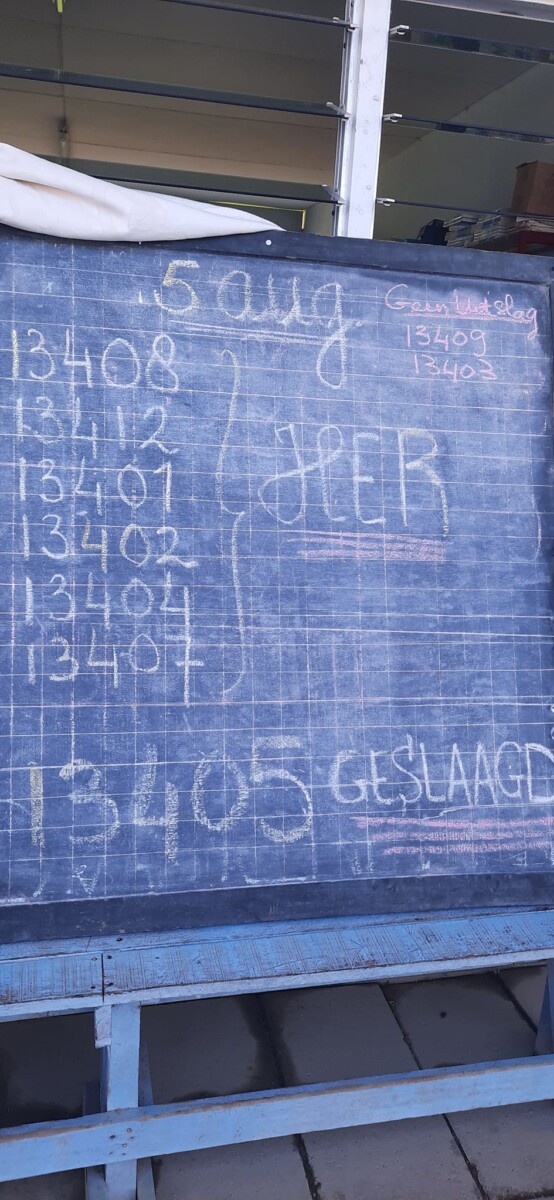 5 aug
Geen Uitslag
13409
13403
13408
13412
13401
13402
13404
13407
HER
13405 GESLAAGD